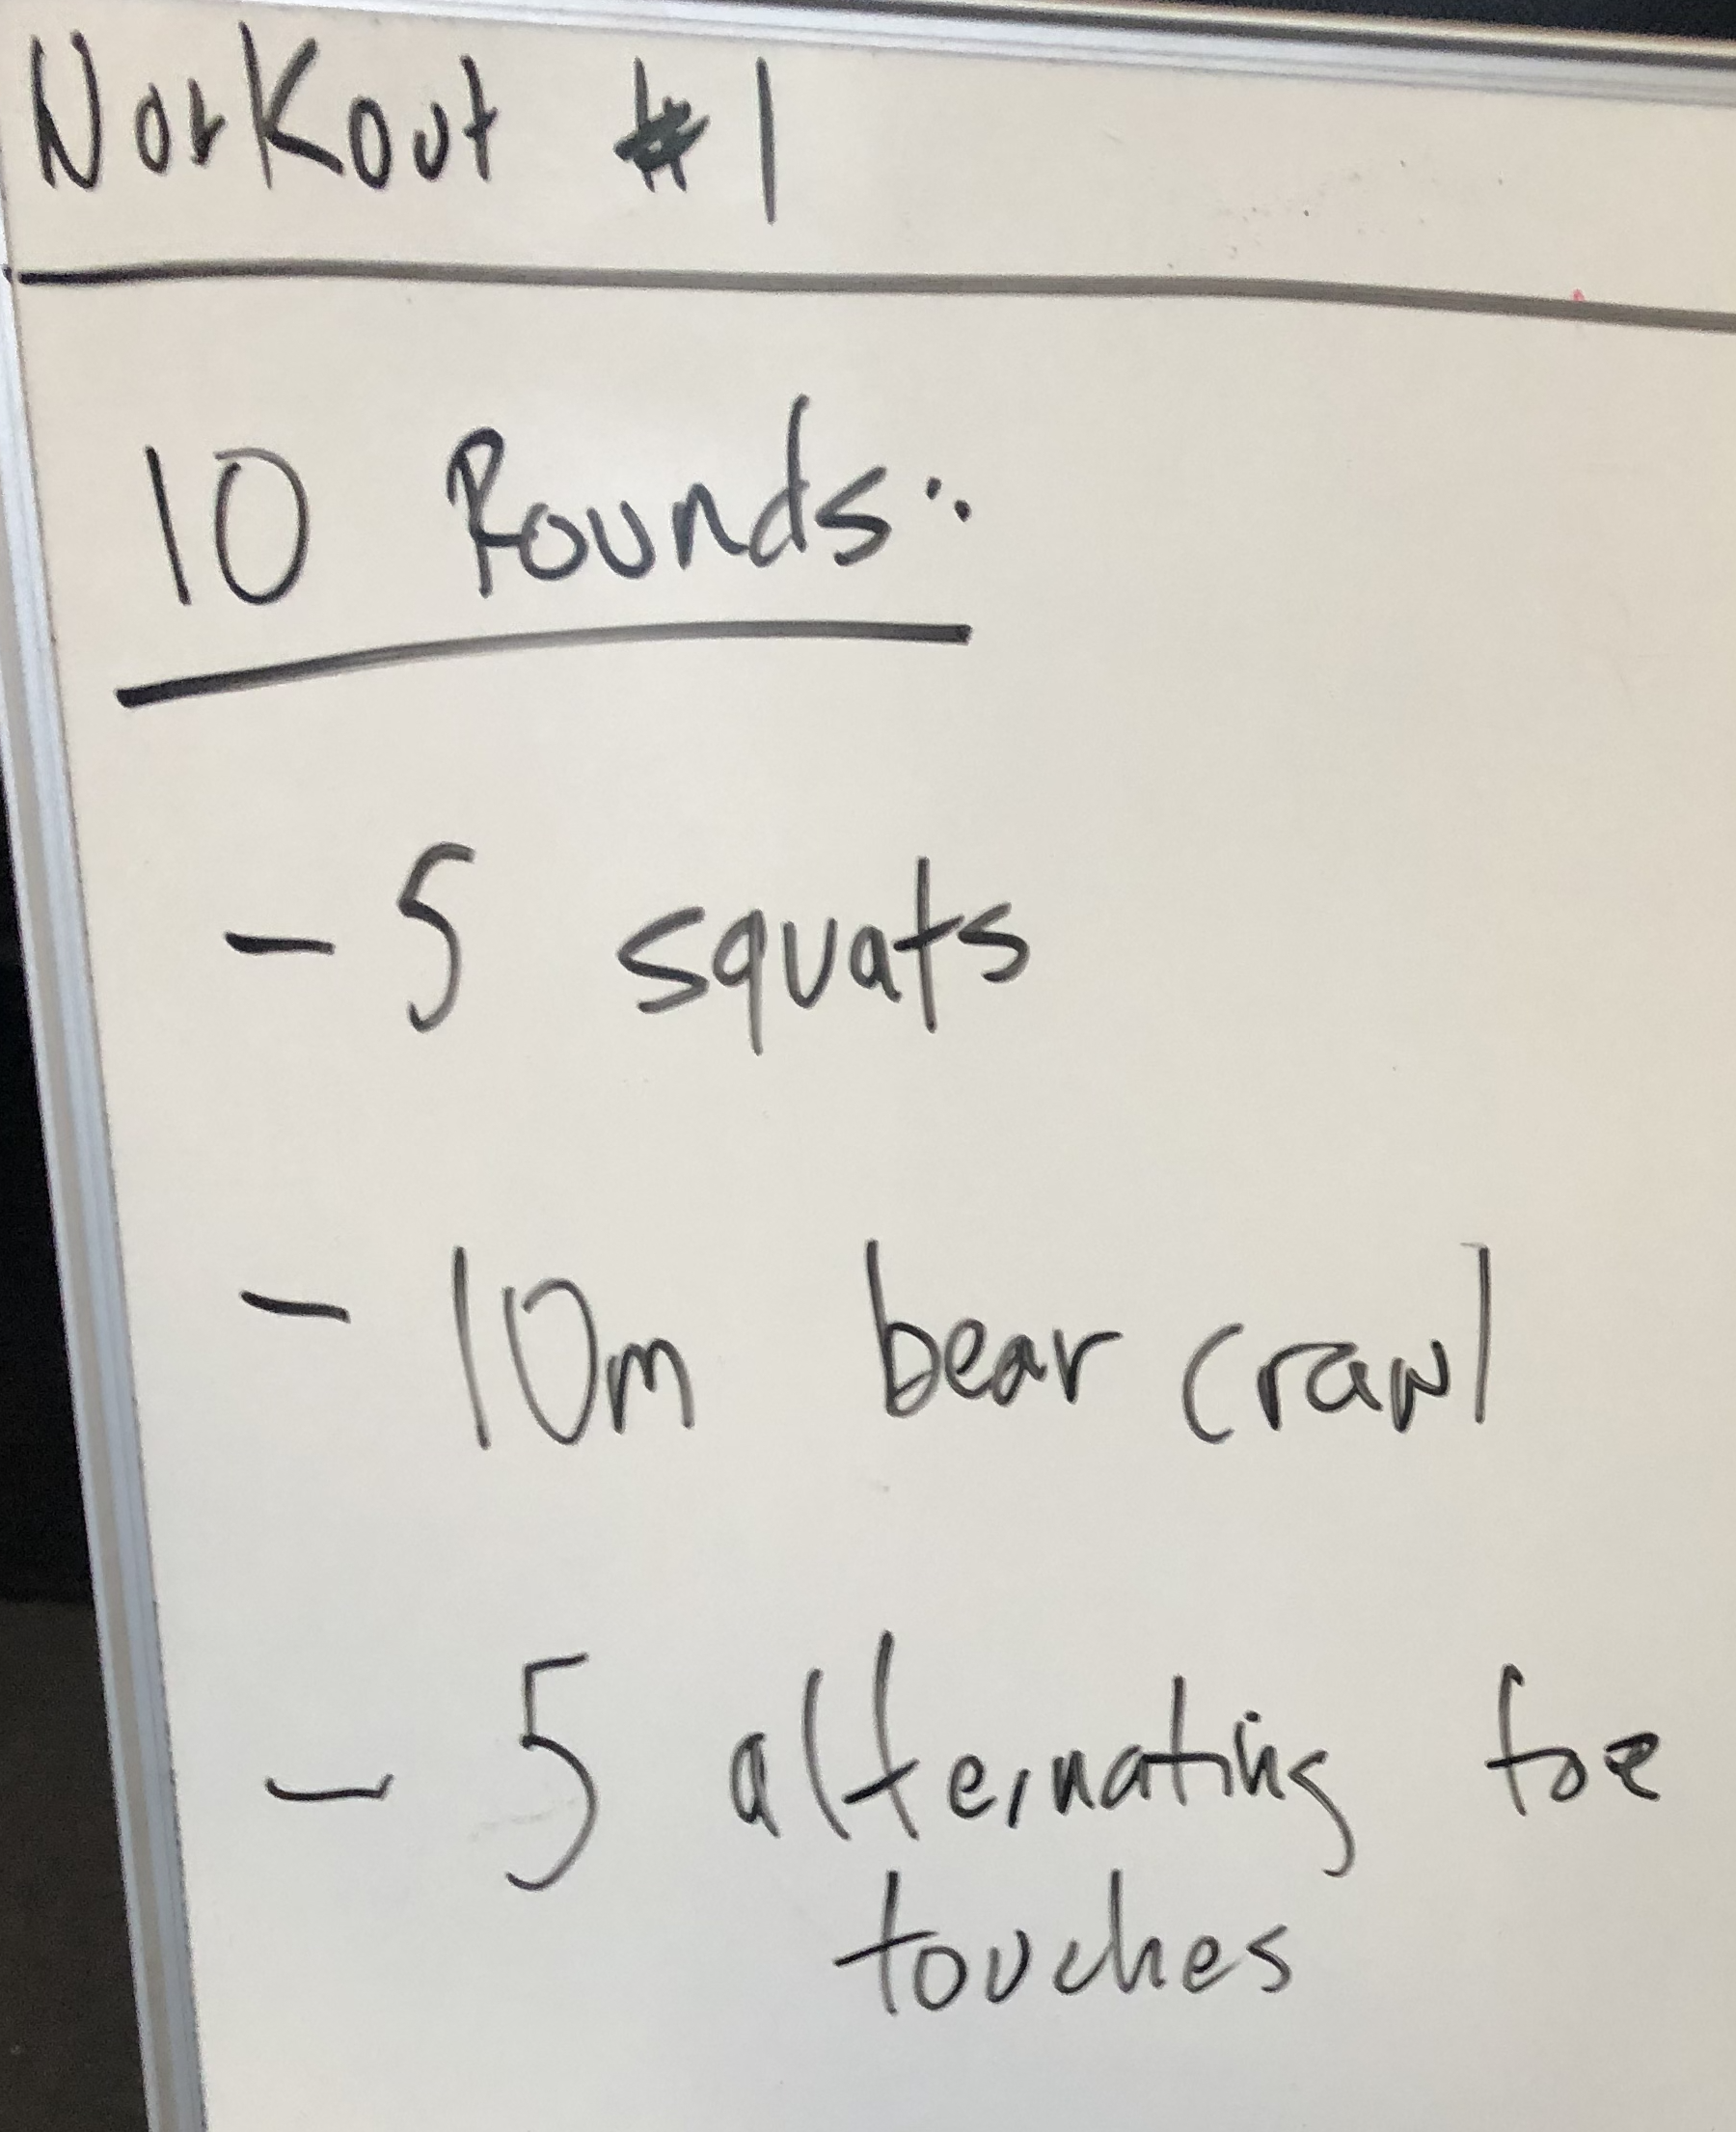 Workout #1
10 Rounds:
- 5 squats
- 10m bear crawl
- 5 alternating toe
touches